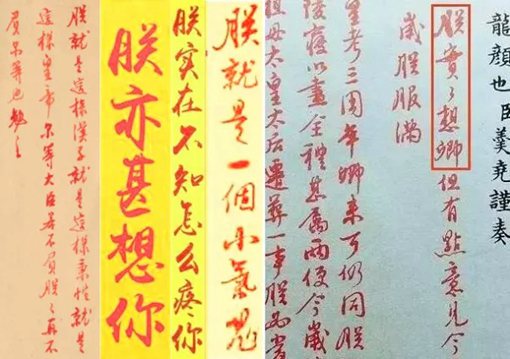 龍顏也臣羹堯謹奏
朕實々想卿但有點意見今
歲朕服滿
皇考三周年卿來可仍同朕
陵寢以盡全禮甚屬兩便今歲
祖母太皇太后遷葬一事朕必
朕就是一個小氣鬼
朕实在不知怎么疼你
朕亦甚想你
朕就是這樣漢子就是這樣秉性就是
這樣皇帝尔等大臣若不負朕々再不
負尔等也勉之